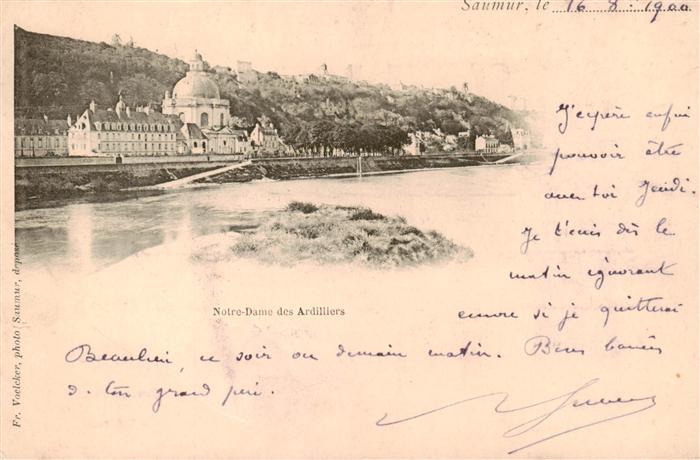 Saumur, le 16 - 8 - 1900
J'espère enfin
pouvoir être
avec toi Jeudi.
Je t'écris dès le
matin ignorant
encore si je quitterai
Beaulieu, ce soir ou demain matin. Bons baisers
de ton grand père.
Notre-Dame des Ardilliers
Fr. Voelcker, photo Saumur, déposé